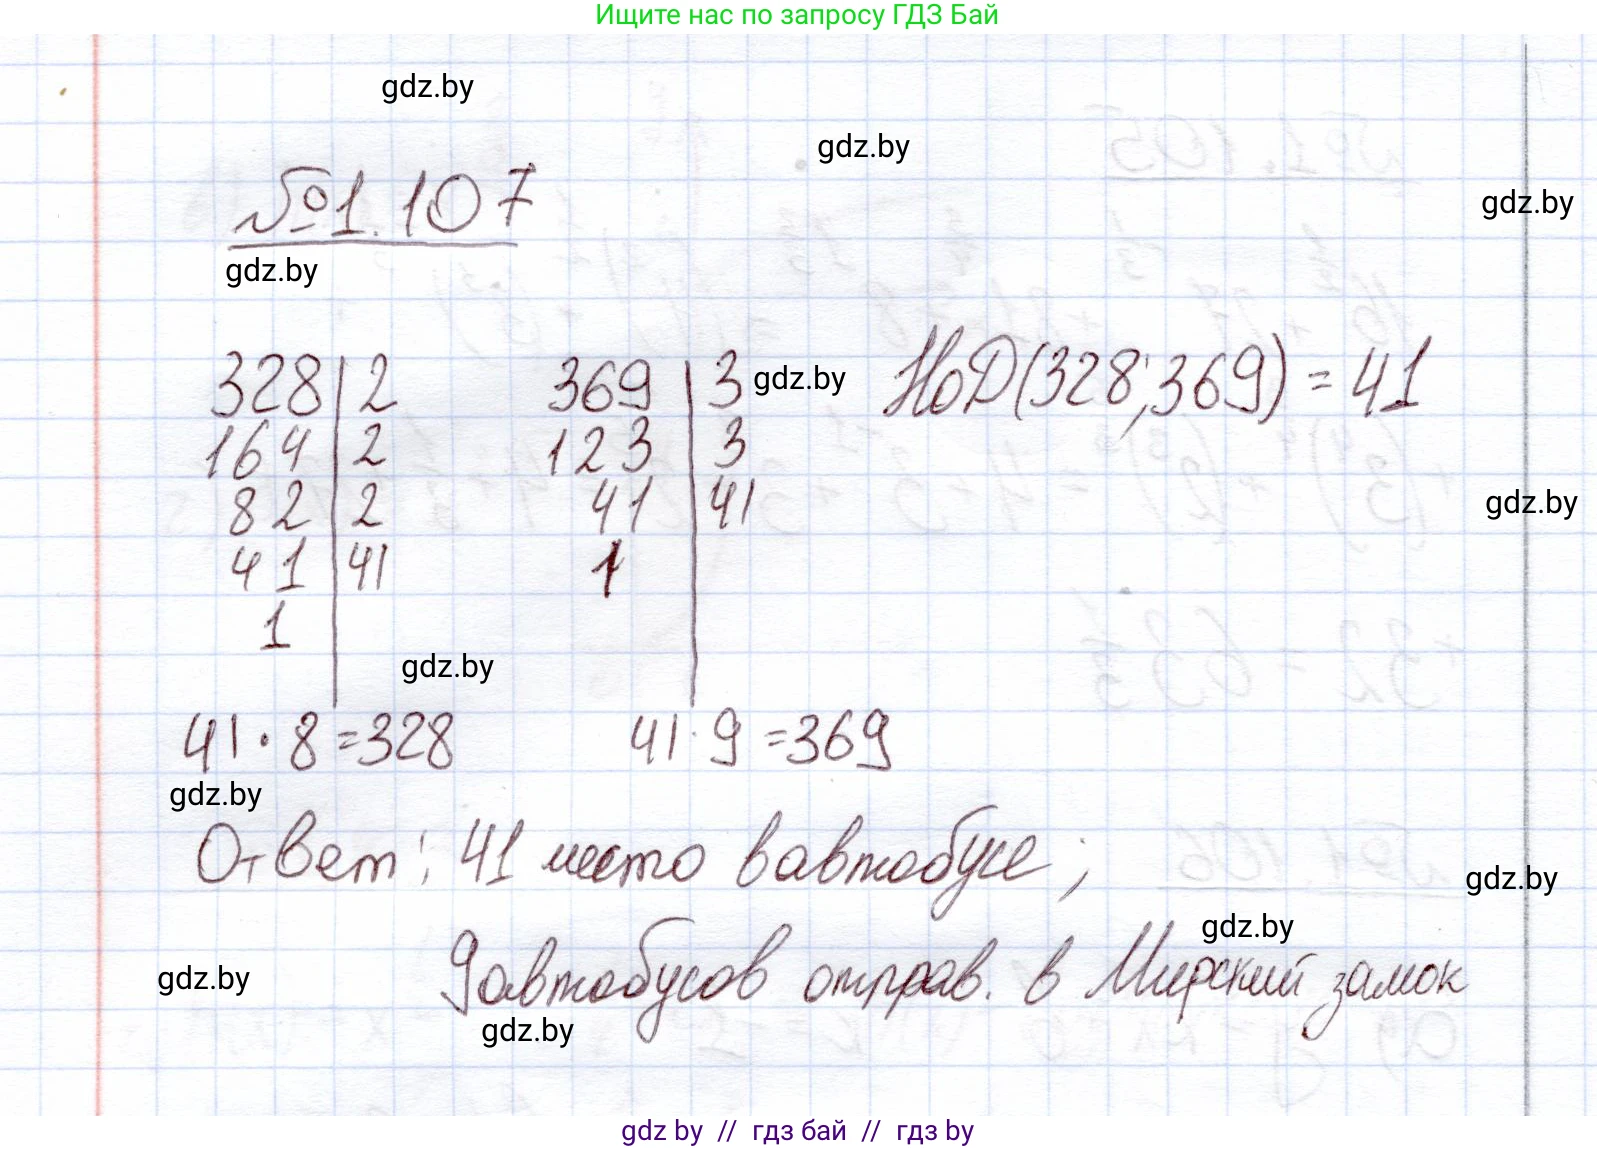 Ищите нас по запросу ГДЗ Бай
gdz.by
gdz.by
gdz.by
№1.107
gdz.by
328 | 2 369 | 3 gdz.by НоД(328;369) = 41
164 | 2 123 | 3
82 | 2 41 | 41 gdz.by
41 | 41 1
1
gdz.by
41·8=328 41·9=369
gdz.by
Ответ: 41 место в автобусе;
gdz.by
gdz.by
9 автобусов отправ. в Мирский замок
gdz.by
gdz.by
gdz by // гдз бай // гдз by